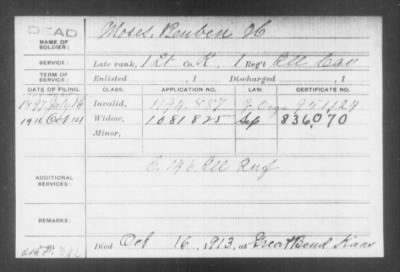 DEAD
NAME OF SOLDIER: Moses, Reuben H
SERVICE: Late rank, 1 Lt Co. K, 1 Reg't Ill Cav
TERM OF SERVICE: Enlisted , 1 Discharged , 1
DATE OF FILING. CLASS. APPLICATION NO. LAW. CERTIFICATE NO.
1897 July 16 Invalid, 1194.887 G 951124
1916 Oct Widow, 1081825 Sep 836,070
Minor,
ADDITIONAL SERVICES: C. 146 Ill Inf
REMARKS:
Died Oct 16, 1913, at Great Bend Kans